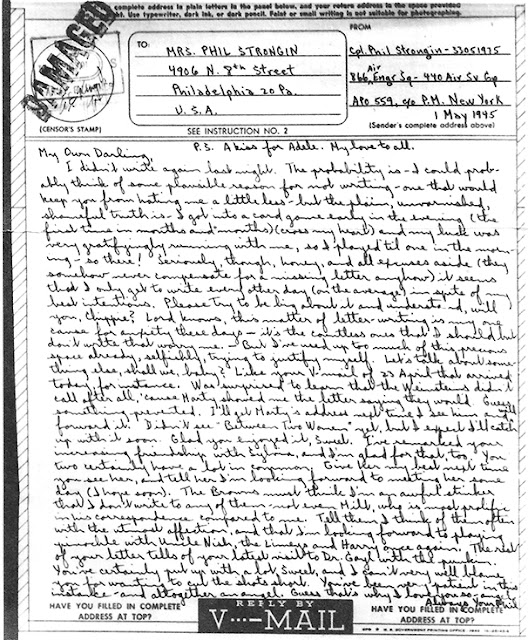 complete address in plain letters in the panel below, and your return address in the space provided
right. Use typewriter, dark ink, or dark pencil. Faint or small writing is not suitable for photographing.
DAMAGED
(CENSOR'S STAMP)
TO:
MRS. PHIL STRONGIN
4906 N. 8th Street
Philadelphia 20 Pa.
U.S.A.
SEE INSTRUCTION NO. 2
FROM
Cpl. Phil Strongin - 33051975
Air
866 Engr Sq - 440 Air Sv Gp
APO 559, c/o P.M. New York
1 May 1945
(Sender's complete address above)
P.S. A kiss for Adele. My love to all.
My Own Darling,
I didn't write again last night. The probability is - I could prob-
ably think of some plausible reason for not writing - one that would
keep you from hating me a little less - but the plain, unvarnished,
shameful truth is - I got into a card game early in the evening (the
first time in months and months) (cross my heart) and my luck was
very gratifyingly running with me, so I played til one in the morn-
ing - so there! Seriously, though, honey, and all excuses aside (they
somehow never compensate for a missing letter anyhow) it seems
that I only get to write every other day (on the average) in spite of my
best intentions. Please try to be big about it and understand, will
you, Chippie? Lord knows, this matter of letter-writing is my one
cause for anxiety these days - it's the countless ones that I should but
don't write that worry me. - But I've used up too much of this precious
space already, selfishly, trying to justify myself. Let's talk about some
thing else, shall we, baby? Like your V-mail of 23 April that arrived
today, for instance. Was surprised to learn that the Weinsteins didn't
call after all, 'cause Morty showed me the letter saying they would. Guess
something prevented. I'll get Morty's address next time I see him and
forward it. Didn't see "Between Two Women" yet, but I expect I'll catch
up with it soon. Glad you enjoyed it, Sweet. I've remarked your
increasing friendship with and I'm glad for that, too. You
two certainly have a lot in common. Give her my best next time
you see her, and tell her I'm looking forward to meeting her some
day (I hope soon). The Browns must think I'm an awful stinker
that I don't write to any of them - not even Milt, who is most prolific
in correspondence compared to me. Tell them I think of them often
with the usual affection, and that I'm looking forward to playing
pinochle with Uncle Nish, the Limey and Harry once again. The rest
of your letter tells of your latest visit to Dr. Gayl with the punkin.
You've certainly put up with a lot, Sweet, and I can't very well blame
you for wanting to cut the shots short. You've been very patient in this
instance - and altogether an angel. Guess that's why I love you so, angel.
Always, Your Phil
HAVE YOU FILLED IN COMPLETE
ADDRESS AT TOP?
REPLY BY
V···—MAIL
HAVE YOU FILLED IN COMPLETE
ADDRESS AT TOP?
U.S. GOVERNMENT PRINTING OFFICE